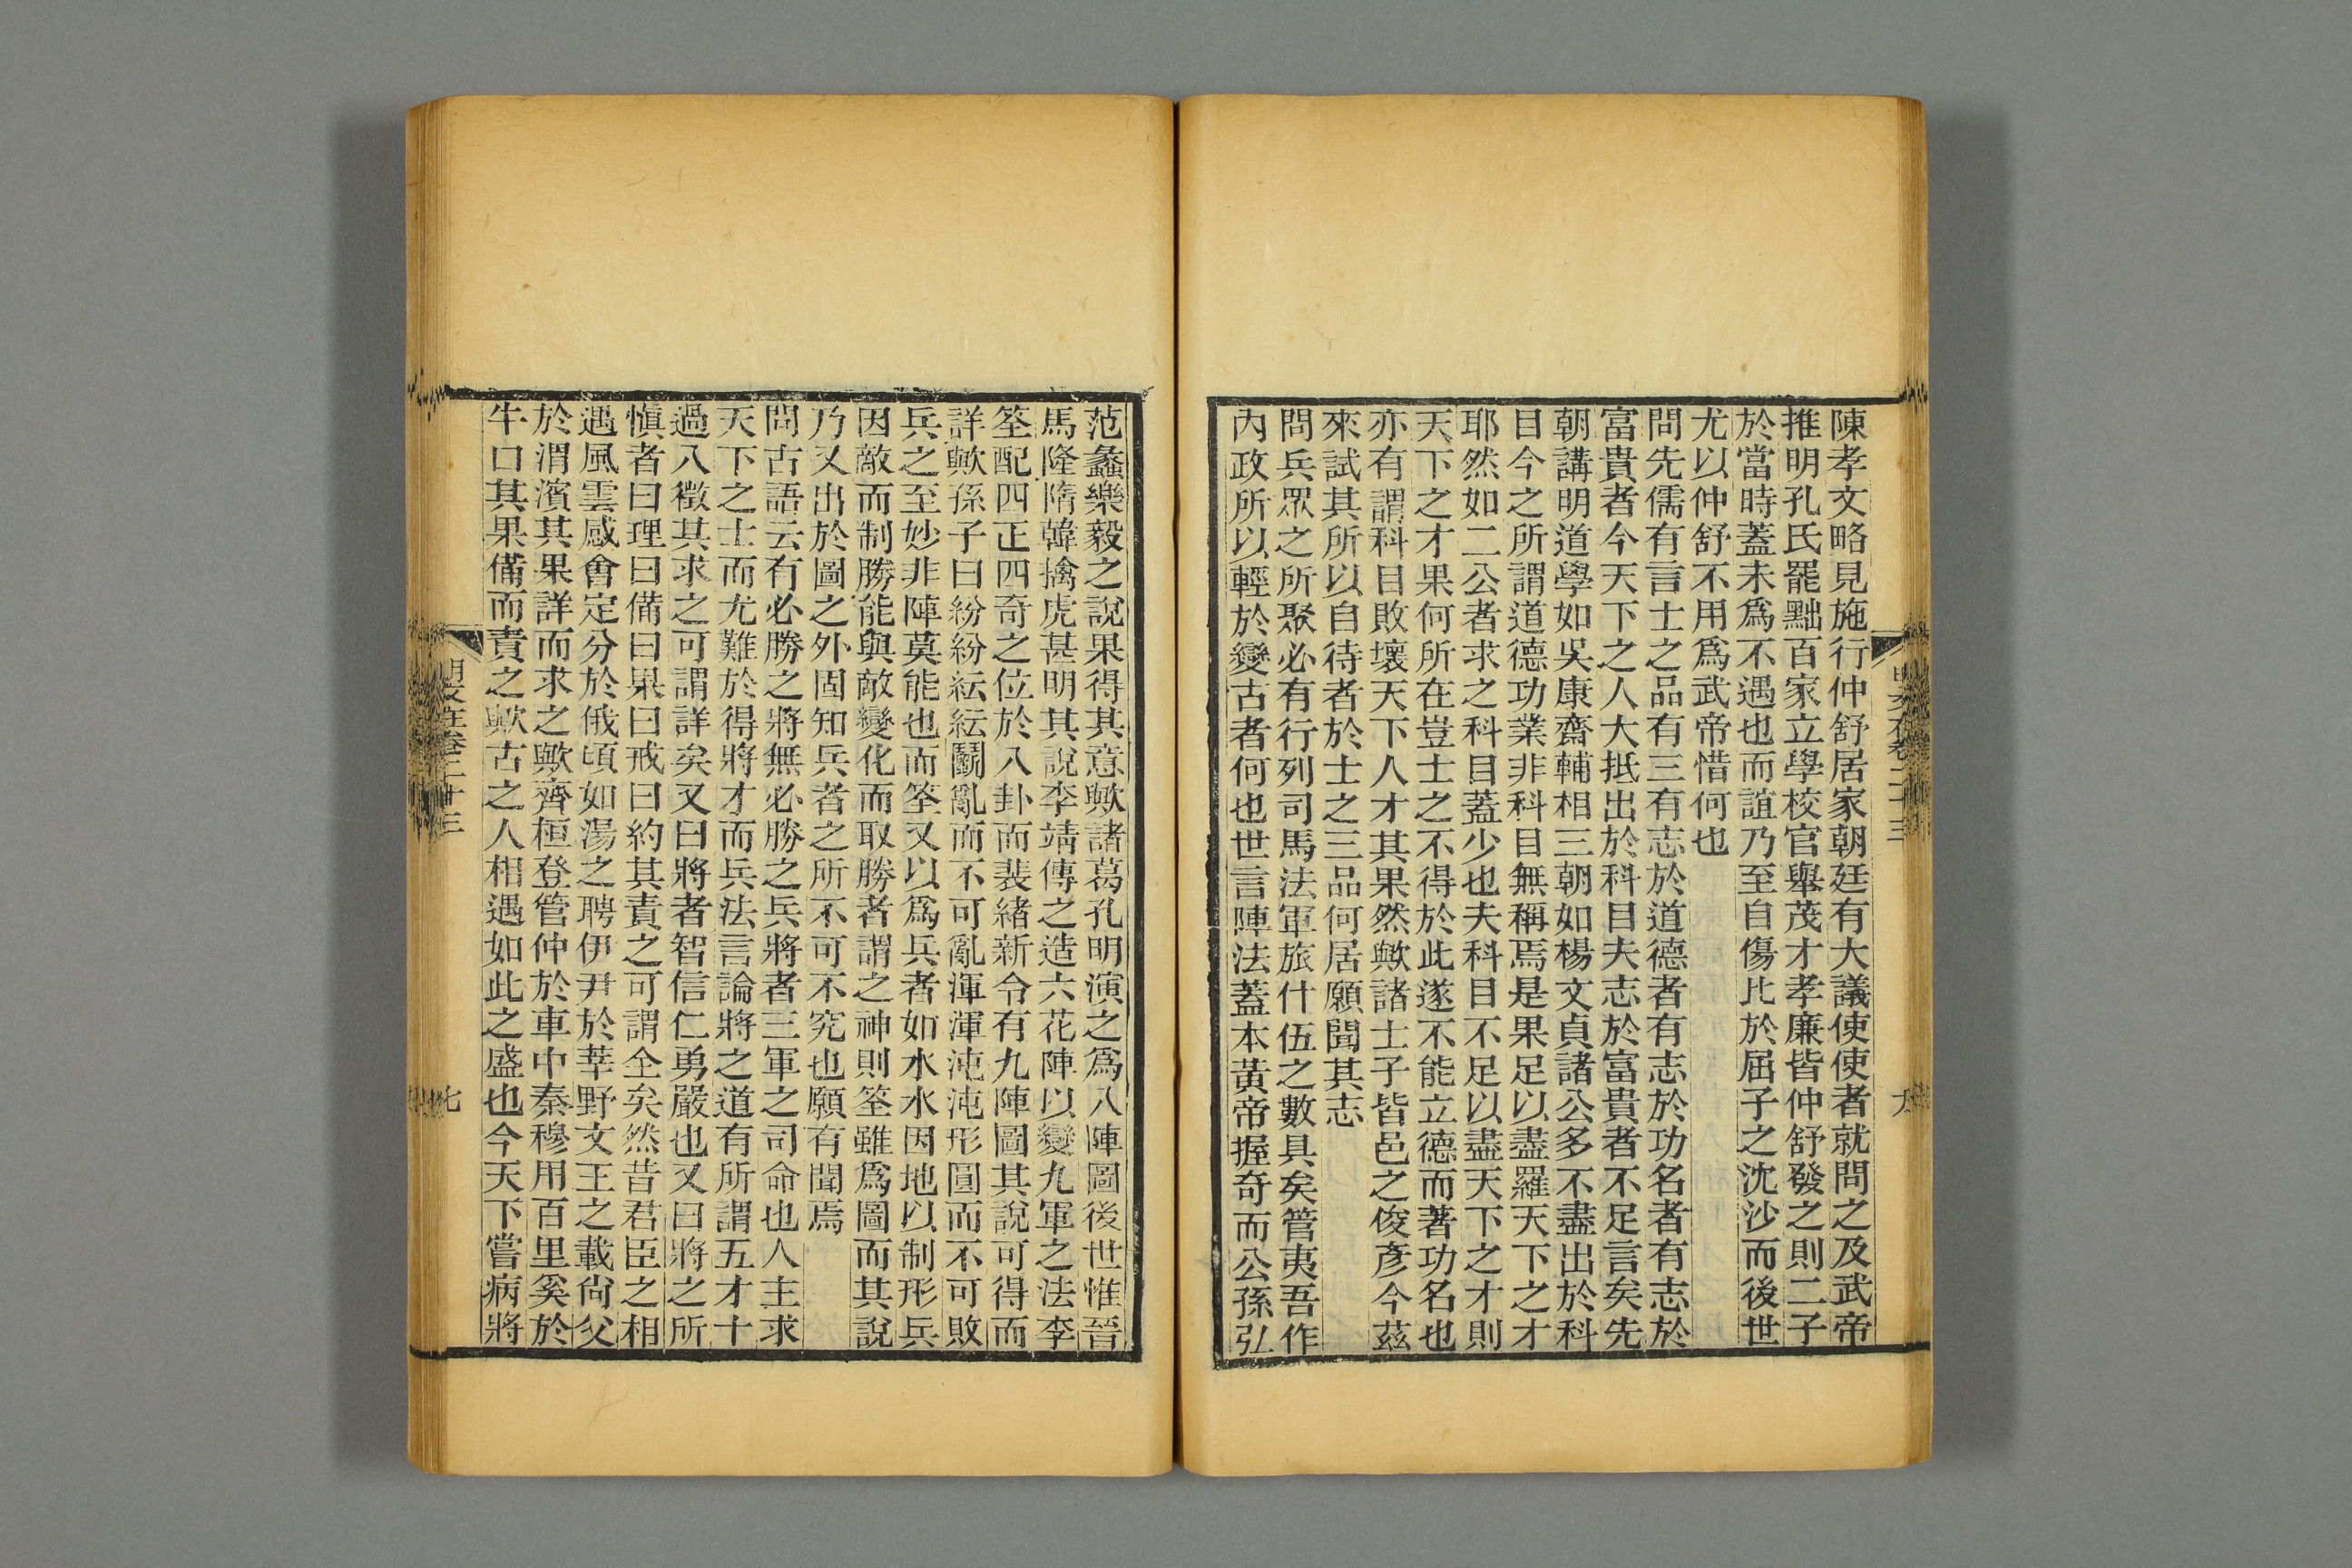 陳孝文略見施行仲舒居家朝廷有大議使使者就問之及武帝
推明孔氏罷黜百家立學校官舉茂才孝廉皆仲舒發之則二子
於當時蓋未爲不遇也而誼乃至自傷比於屈子之沈沙而後世
尤以仲舒不用爲武帝惜何也
問先儒有言士之品有三有志於道德者有志於功名者有志於
富貴者今天下之人大抵出於科目夫志於富貴者不足言矣先
朝講明道學如吳康齋輔相三朝如楊文貞諸公多不盡出於科
目今之所謂道德功業非科目無稱焉是果足以盡羅天下之才
耶然如二公者求之科目蓋少也夫科目不足以盡天下之才則
天下之才果何所在豈士之不得於此遂不能立德而著功名也
亦有謂科目敗壞天下人才其果然歟諸士子皆邑之俊彥今茲
來試其所以自待者於士之三品何居願聞其志
問兵眾之所聚必有行列司馬法軍旅什伍之數具矣管夷吾作
內政所以輕於變古者何也世言陣法蓋本黃帝握奇而公孫弘
范蠡樂毅之說果得其意歟諸葛孔明演之爲八陣圖後世惟晉
馬隆隋韓擒虎甚明其說李靖傳之造六花陣以變九軍之法李
筌配四正四奇之位於八卦而裴緒新令有九陣圖其說可得而
詳歟孫子曰紛紛紜紜鬬亂而不可亂渾渾沌沌形圓而不可敗
兵之至妙非陣莫能也而筌又以爲兵者如水水因地以制形兵
因敵而制勝能與敵變化而取勝者謂之神則筌雖爲圖而其說
乃又出於圖之外固知兵者之所不可不究也願有聞焉
問古語云有必勝之將無必勝之兵將者三軍之司命也人主求
天下之士而尤難於得將才而兵法言論將之道有所謂五才十
過八徵其求之可謂詳矣又曰將者智信仁勇嚴也又曰將之所
慎者曰理曰備曰果曰戒曰約其責之可謂全矣然昔君臣之相
遇風雲感會定分於俄頃如湯之聘伊尹於莘野文王之載尚父
於渭濱其果詳而求之歟齊桓登管仲於車中秦穆用百里奚於
牛口其果備而責之歟古之人相遇如此之盛也今天下嘗病將
明文在卷二十三
七